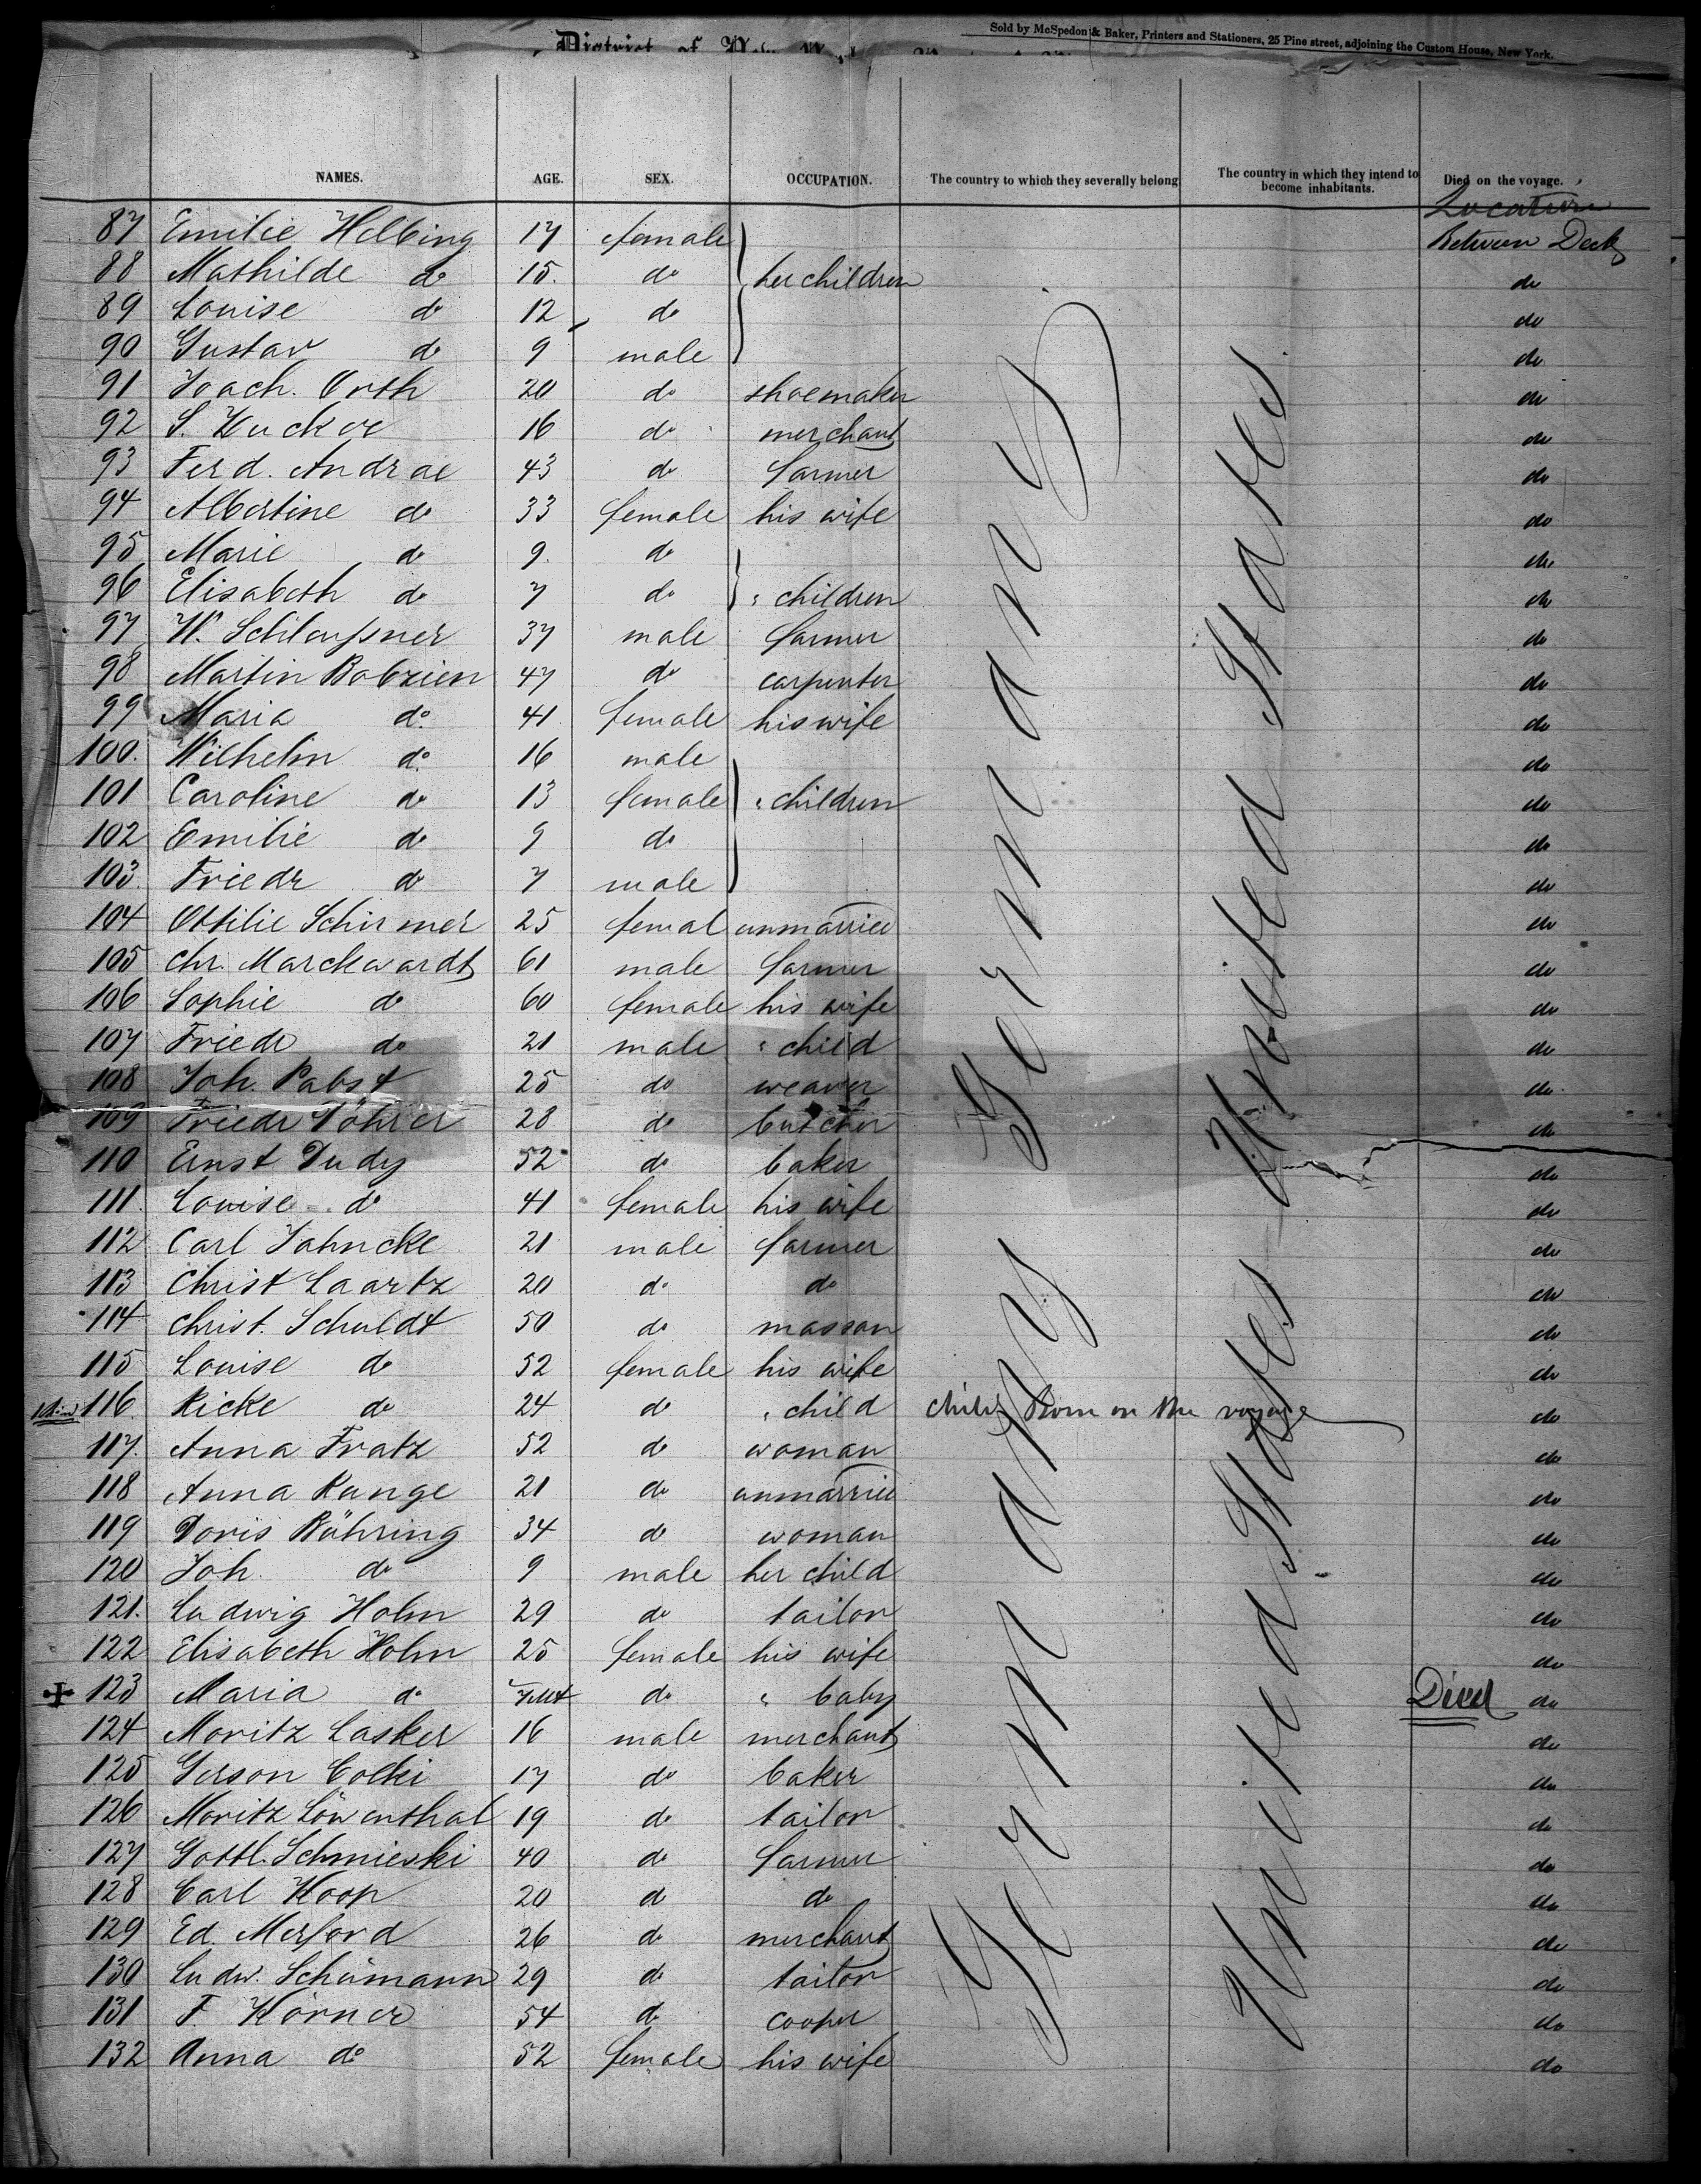 Sold by McSpedon & Baker, Printers and Stationers, 25 Pine street, adjoining the Custom House, New York.
District of New
NAMES. AGE. SEX. OCCUPATION. The country to which they severally belong The country in which they intend to become inhabitants. Died on the voyage.
Location
87 Emilie Helbing 17 female Between Deck
88 Mathilde do 15. do her children do
89 Louise do 12 do do
90 Gustav do 9 male do
91 Joach. Orth 20 do shoemaker do
92 S. Hucke 16 do merchant do
93 Ferd. Andrae 43 do farmer do
94 Albertine do 33 female his wife do
95 Marie do 9. do do
96 Elisabeth do 7 do " children do
97 W. Schleussner 37 male farmer do
98 Martin Babzien 47 do carpenter do
99 Maria do. 41 female his wife do
100. Wilhelm do. 16 male do
101 Caroline do 13 female " children do
102 Emilie do 9 do do
103. Friedr do 7 male do
104 Ottilie Schirmer 25 femal unmarried do
105 Chr. Marckwardt 61 male farmer do
106 Sophie do 60 female his wife do
107 Friedr do 21 male " child do
108 Joh. Pabst 25 do weaver do
109 Friedr 28 do butcher do
110 Ernst Dudy 52 do baker do
111. Louise do 41 female his wife do
112 Carl Jahncke 21 male farmer do
113 Christ Laartz 20 do do do
114 Christ. Schuldt 50 do masson do
115 Louise do 52 female his wife do
116. Ricke do 24 do " child child born on the voyage do
117. Anna Fratz 52 do woman do
118 Anna Runge 21 do unmarried do
119 Doris Bühring 34 do woman do
120 Joh. do 9 male her child do
121. Ludwig Holm 29 do tailor do
122 Elisabeth Holm 25 female his wife do
123 Maria do do " baby Died do
124 Moritz Lasker 16 male merchant do
125 Gerson Colki 17 do baker do
126 Moritz Löwenthal 19 do tailor do
127 Gottl. Schmieski 40 do farmer do
128 Carl Koop 20 do do do
129 Ed. Merford 26 do merchant do
130 Ludw. Schümann 29 do tailor do
131 F. Körner 54 do cooper do
132 Anna do 52 female his wife do
Germany
United States
Germany
United States